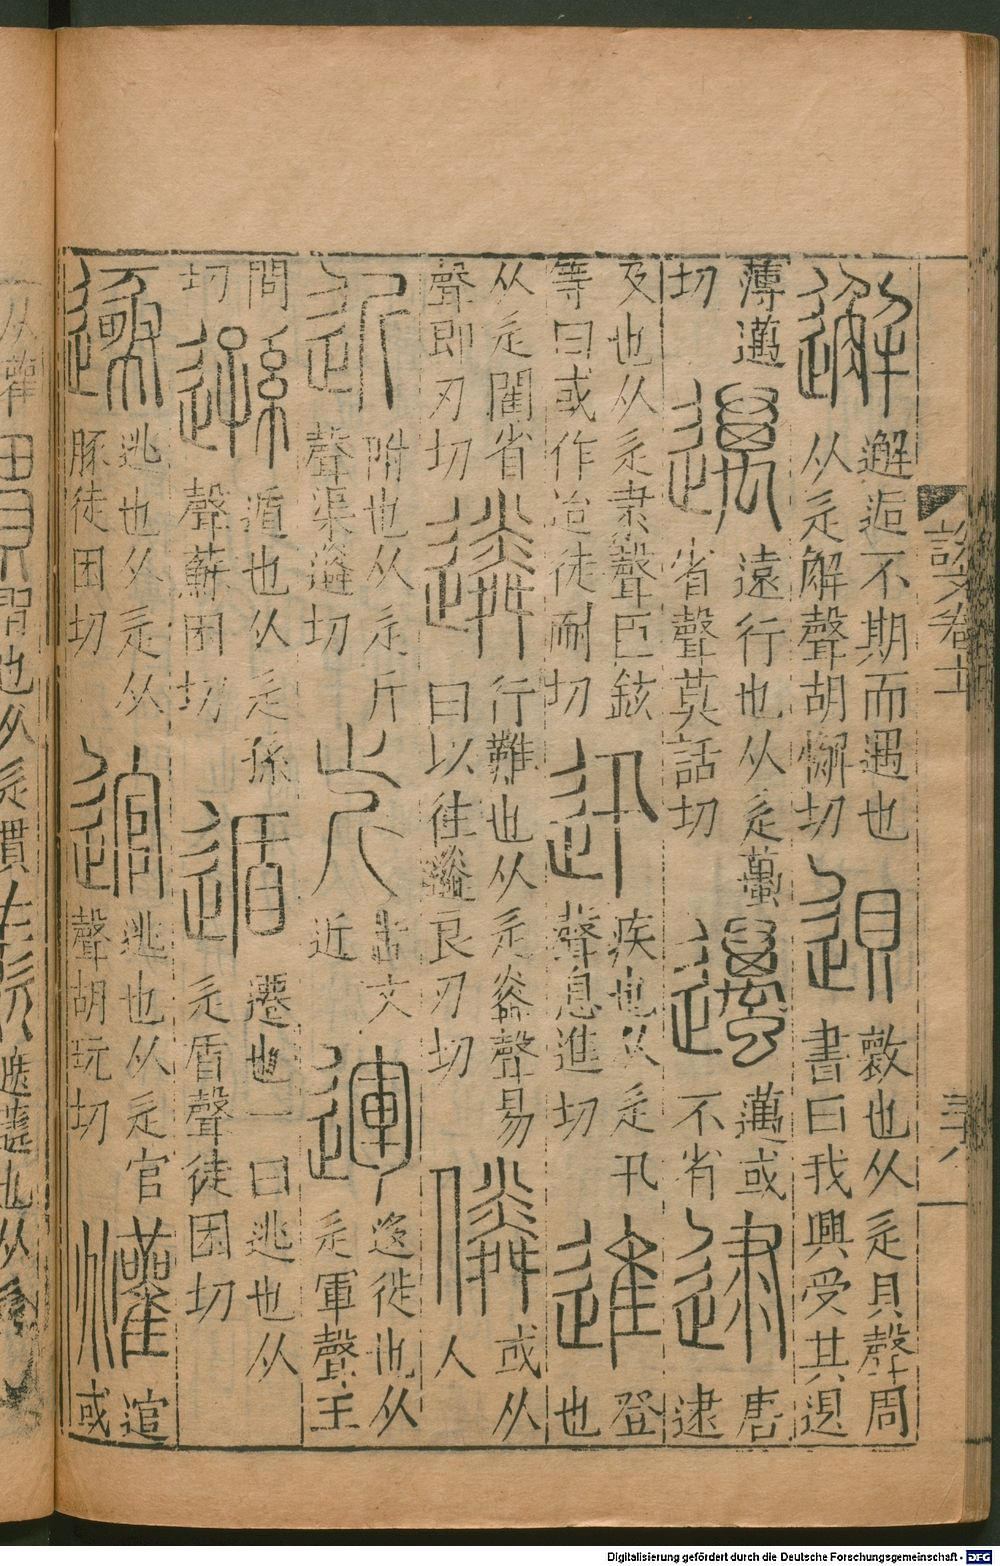 邂 邂逅不期而遇也
从辵解聲胡懈切
𨓤 也从辵貝聲周
書曰我興受其𨓤
薄邁
切
邁 遠行也从辵蠆
省聲莫話切
邁或
不省
逮 唐
逮
及也从辵隶聲臣鉉
等曰或作迨徒耐切
迅 疾也从辵卂
聲息進切
進 登
也
从辵閵省
聲即刃切
遴 行難也从辵粦聲易
曰以往遴良刃切
僯 或从
人
近 附也从辵斤
聲渠遴切
古文
近
運 迻徙也从
辵軍聲王
問
切
遜 遁也从辵孫
聲蘇困切
遁 遷也一曰逃也从
辵盾聲徒困切
遯 逃也从辵从
豚徒困切
逭 逃也从辵官
聲胡玩切
逭
或
說文卷
三十八
Digitalisierung gefördert durch die Deutsche Forschungsgemeinschaft - DFG